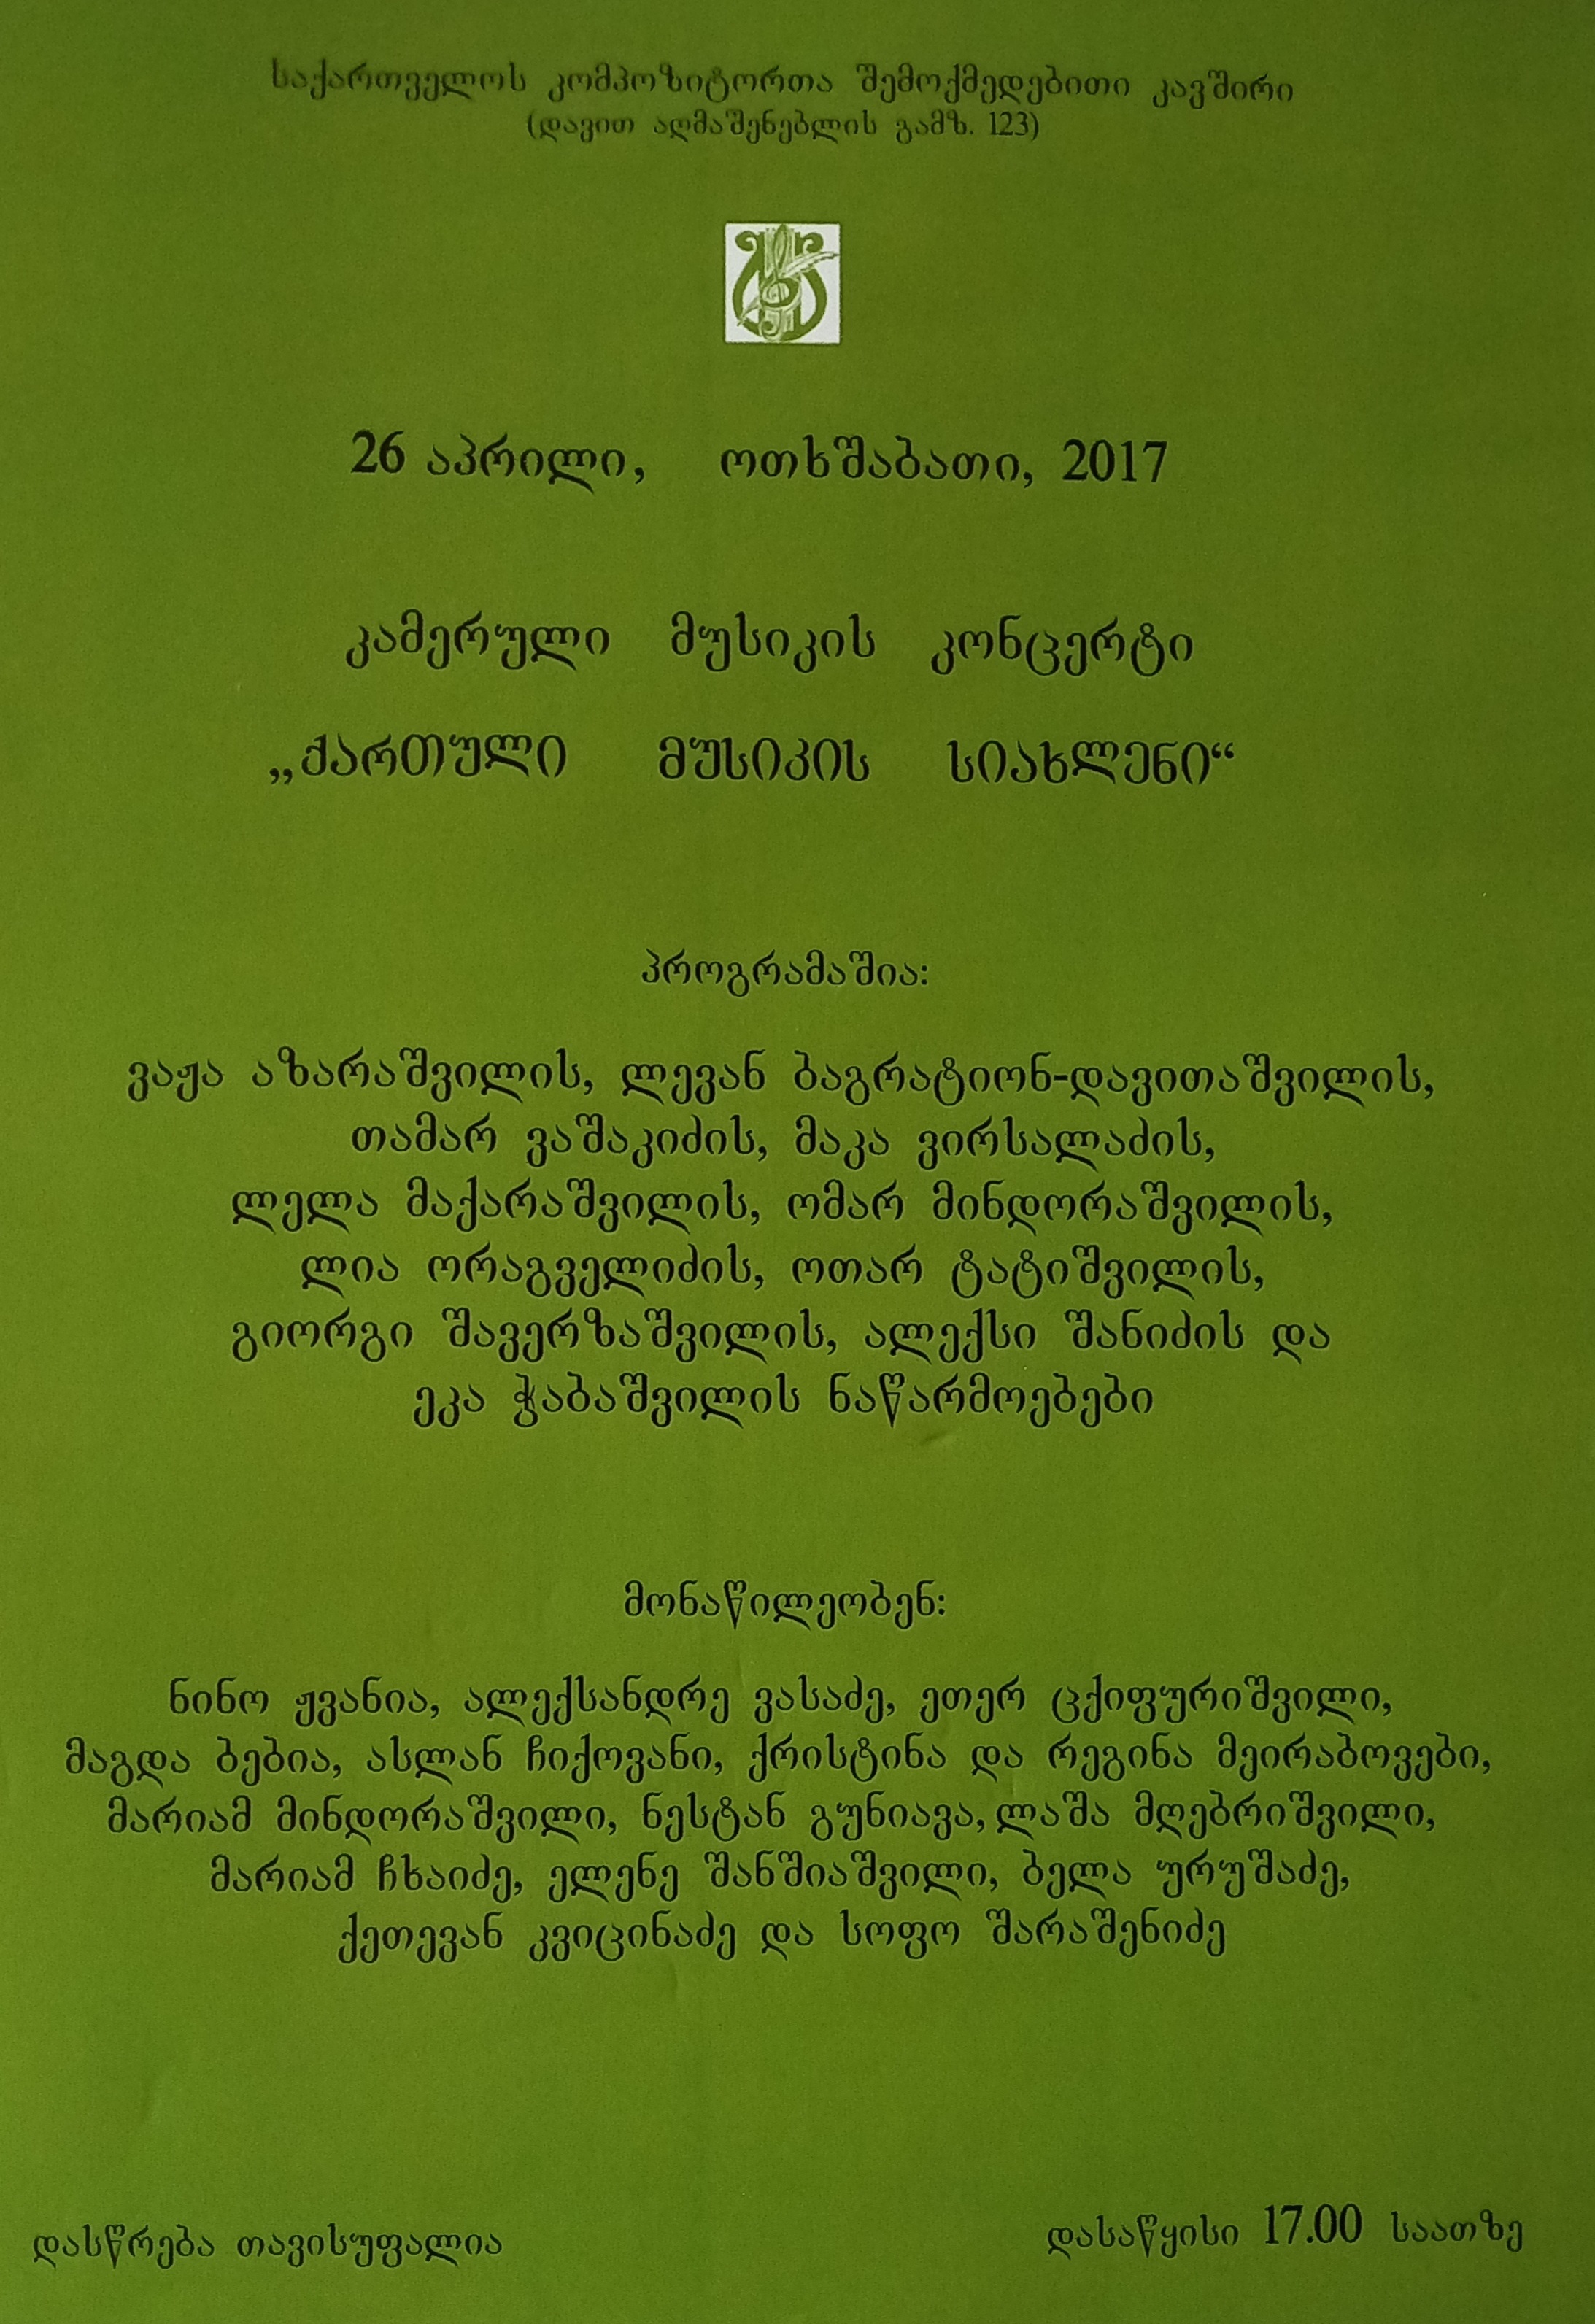 საქართველოს კომპოზიტორთა შემოქმედებითი კავშირი
(დავით აღმაშენებლის გამზ. 123)
26 აპრილი, ოთხშაბათი, 2017
კამერული მუსიკის კონცერტი
„ქართული მუსიკის სიახლენი“
პროგრამაშია:
ვაჟა აზარაშვილის, ლევან ბაგრატიონ-დავითაშვილის,
თამარ ვაშაკიძის, მაკა ვირსალაძის,
ლელა მაქარაშვილის, ომარ მინდორაშვილის,
ლია ორაგველიძის, ოთარ ტატიშვილის,
გიორგი შავერზაშვილის, ალექსი შანიძის და
ეკა ჭაბაშვილის ნაწარმოებები
მონაწილეობენ:
ნინო ჟვანია, ალექსანდრე ვასაძე, ეთერ ცქიფურიშვილი,
მაგდა ბებია, ასლან ჩიქოვანი, ქრისტინა და რეგინა მეირაბოვები,
მარიამ მინდორაშვილი, ნესტან გუნიავა, ლაშა მღებრიშვილი,
მარიამ ჩხაიძე, ელენე შანშიაშვილი, ბელა ურუშაძე,
ქეთევან კვიცინაძე და სოფო შარაშენიძე
დასწრება თავისუფალია
დასაწყისი 17.00 საათზე